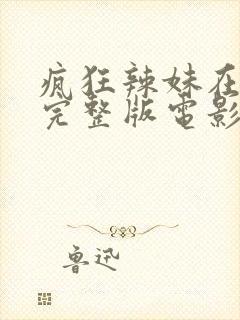 疯狂辣妹在
完整版电影
鲁迅